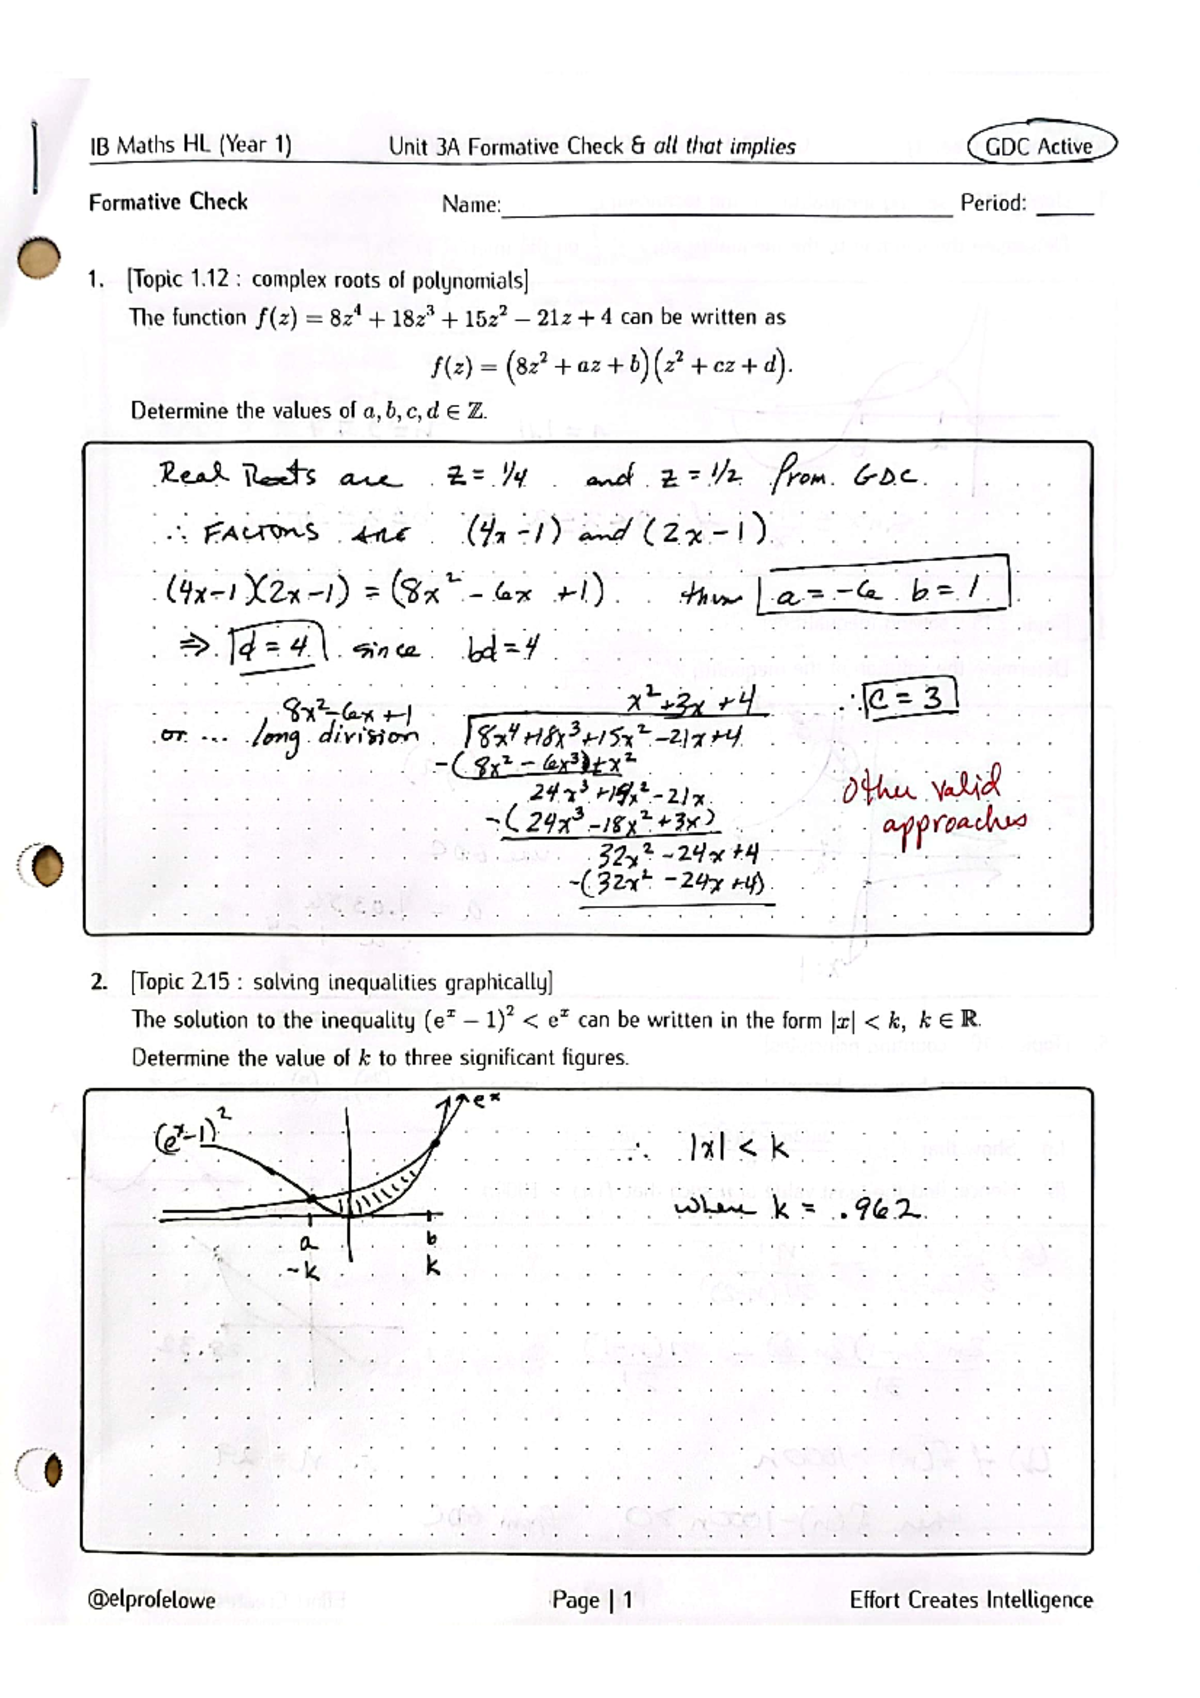 IB Maths HL (Year 1) Unit 3A Formative Check & all that implies GDC Active
Formative Check Name: Period:
1. [Topic 1.12 : complex roots of polynomials]
The function f(z) = 8z⁴ + 18z³ + 15z² − 21z + 4 can be written as
f(z) = (8z² + az + b)(z² + cz + d).
Determine the values of a, b, c, d ∈ ℤ.
Real Roots are z = 1/4 and z = 1/2 from GDC.
∴ FACTORS ARE (4x−1) and (2x−1)
(4x−1)(2x−1) = (8x² − 6x + 1) then a = −6 b = 1
⇒ d = 4 since bd = 4
x² + 3x + 4 ∴ C = 3
8x²−6x+1
or ... long division 8x⁴+18x³+15x²−21x+4
−(8x² − 6x³)+x²
24x³+14x²−21x
−(24x³−18x²+3x)
32x²−24x+4
−(32x²−24x+4)
Other valid
approaches
2. [Topic 2.15 : solving inequalities graphically]
The solution to the inequality (eˣ − 1)² < eˣ can be written in the form |x| < k, k ∈ ℝ.
Determine the value of k to three significant figures.
(eˣ−1)² eˣ
∴ |x| < k
where k = .962
a b
−k k
@elprofelowe Page | 1 Effort Creates Intelligence